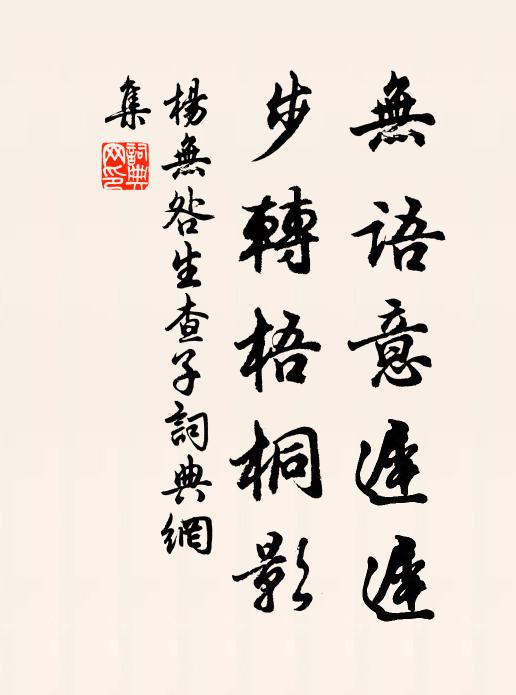 無語意遲遲
步轉梧桐影
楊無咎生查子詞典網
集
詞典網印